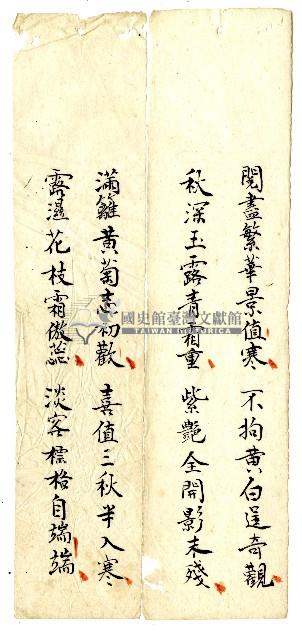 閱盡繁華景值寒 不拘黃白逞奇觀
秋深玉露青霜重 紫艷全開影未殘
滿籬黃菊喜初歡 喜值三秋半入寒
露濕花枝霜傲蕊 淡容標格自端端
國史館臺灣文獻館
TAIWAN HISTORICA